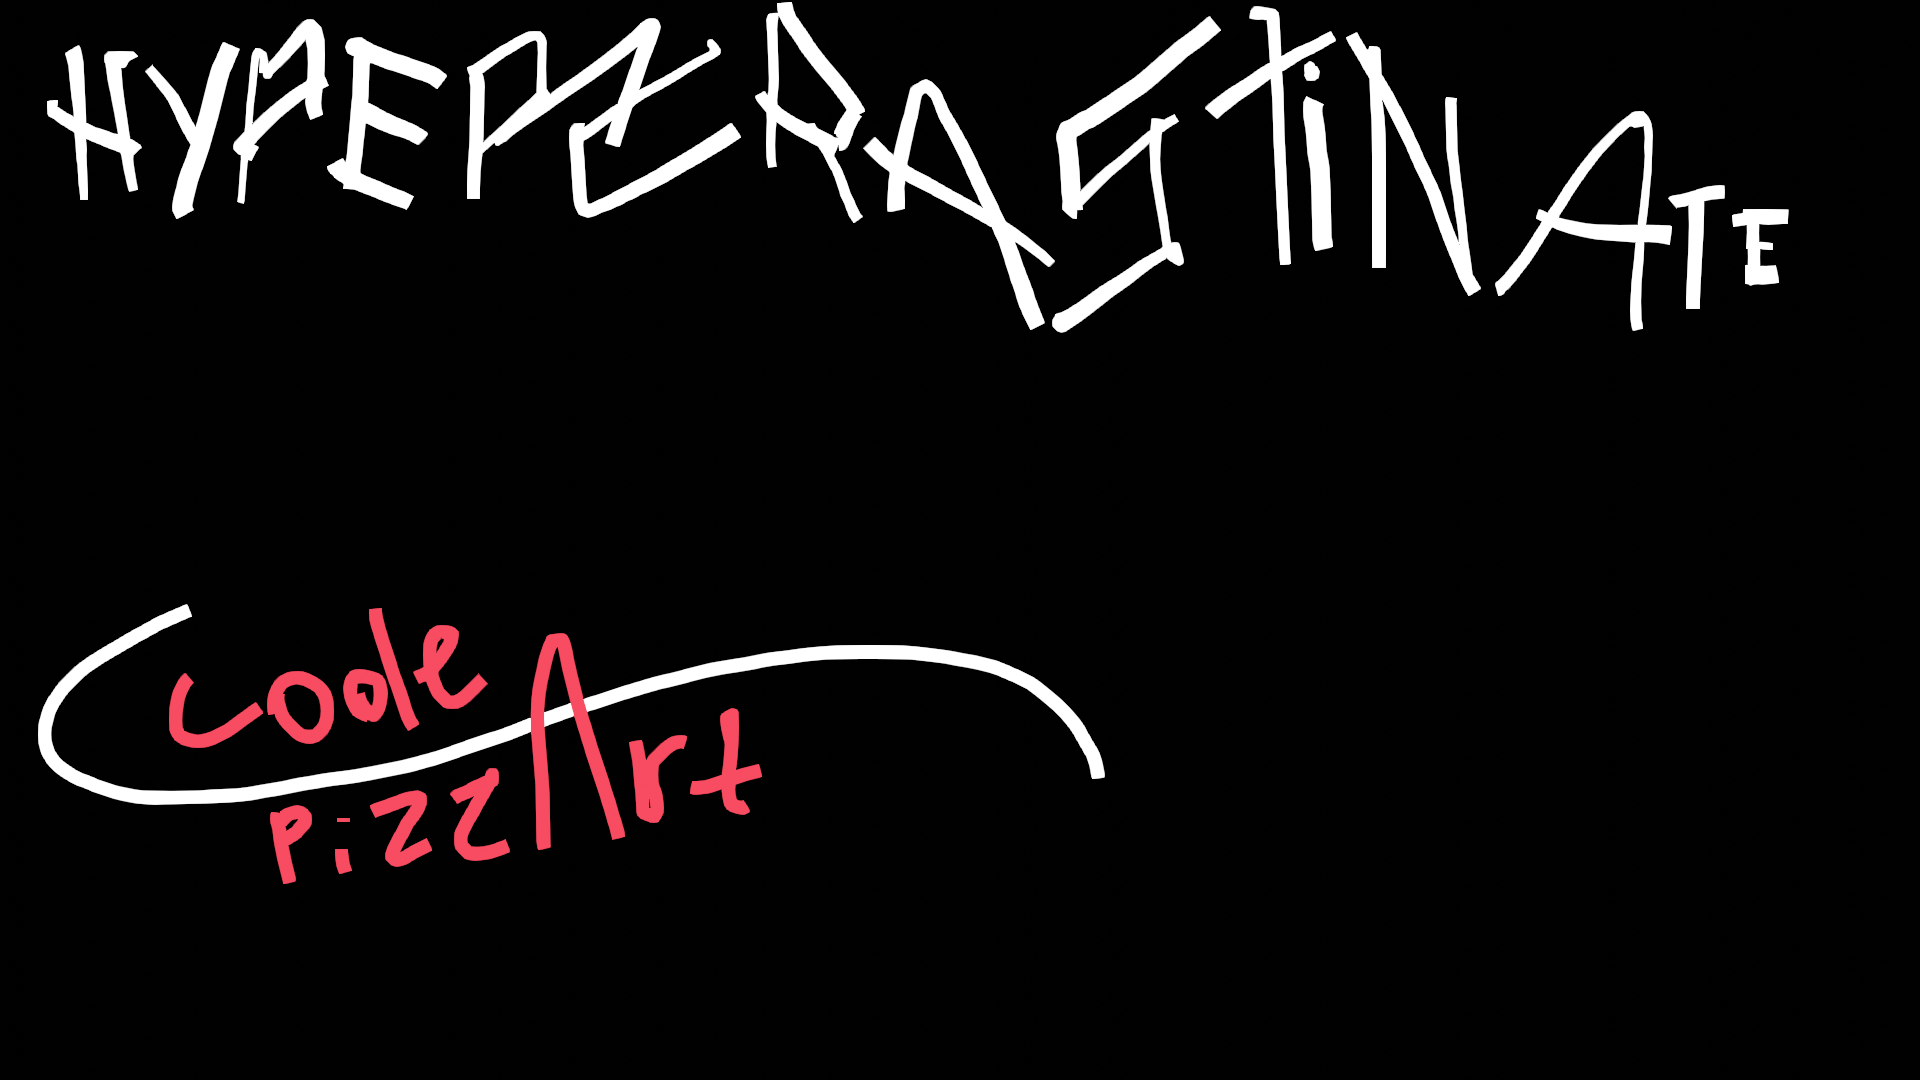 HYPEPZRASTiNATE
Code
PizzArt